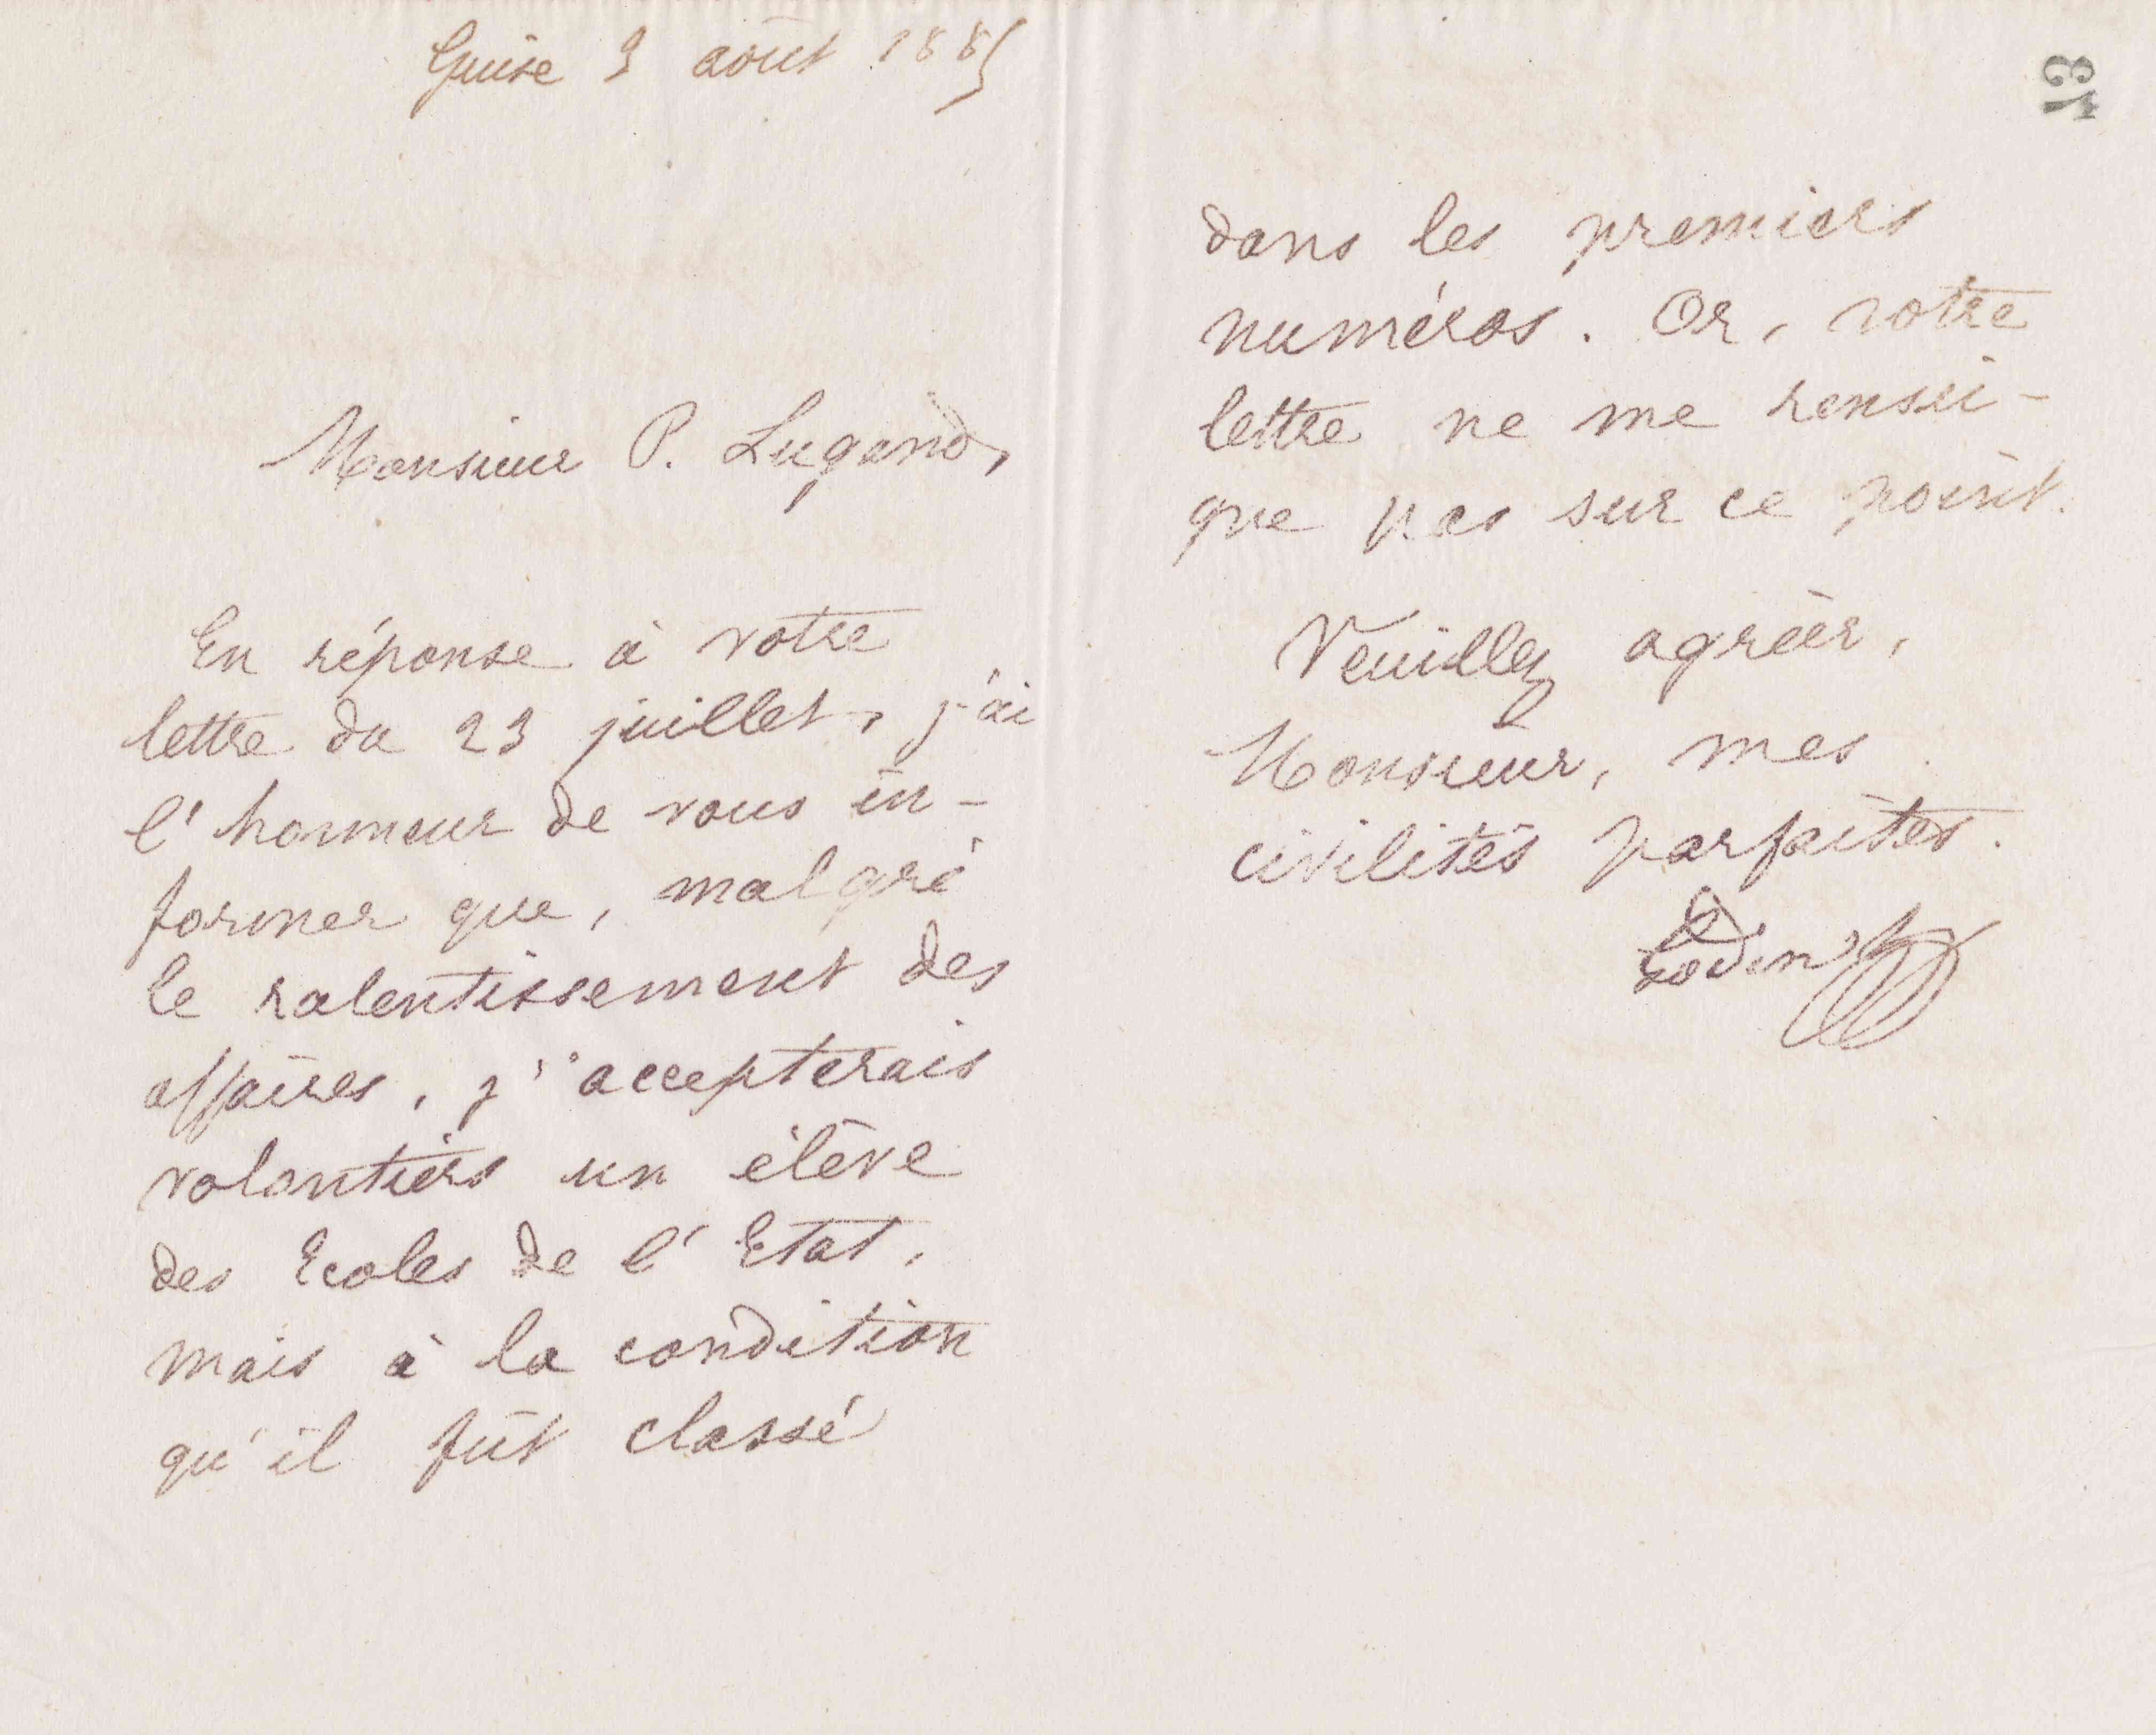 Guise 3 août 1885
Monsieur P. Lugand,
En réponse à votre
lettre du 23 juillet, j'ai
l'honneur de vous in-
former que, malgré
le ralentissement des
affaires, j'accepterais
volontiers un élève
des Ecoles de l'Etat,
mais à la condition
qu'il fût classé
13
dans les premiers
numéros. Or, votre
lettre ne me rensei-
gne pas sur ce point.
Veuillez agréer,
Monsieur, mes
civilités parfaites.
Godin